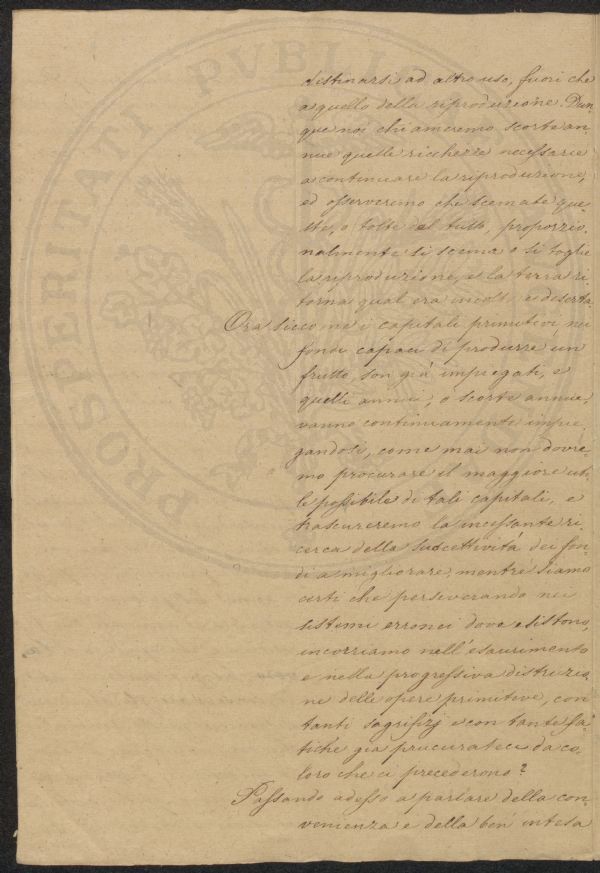 destinarsi ad altro uso, fuori che
a quello della riproduzione. Dun,
que noi chiameremo scorte an,
nue quelle ricchezze necessarie
a continuare la riproduzione,
ed osserveremo che scemate que,
ste, o tolte del tutto, proporzio,
nalmente si scema o si toglie
la riproduzione, e la terra ri,
torna qual era incolta e deserta.
Ora siccome i capitali primitivi nei
fondi capaci di produrre un
frutto, son già impiegati, e
quelli annui, o scorte annue,
vanno continuamente impie,
gandosi, come mai non dovre,
mo procurare il maggiore uti,
le possibile di tali capitali, e
trascureremo la incessante ri,
cerca della suscettività dei fon,
di a migliorare, mentre siamo
certi che perseverando nei
sistemi erronei dove esistono,
incorriamo nell'esaurimento
e nella progressiva distruzio,
ne delle opere primitive, con
tanti sagrifizj e con tante fa,
tiche già procurateci da co,
loro che ci precederono?
Passando adesso a parlare della con,
venienza e della ben intesa
PROSPERITATI PVBLIC